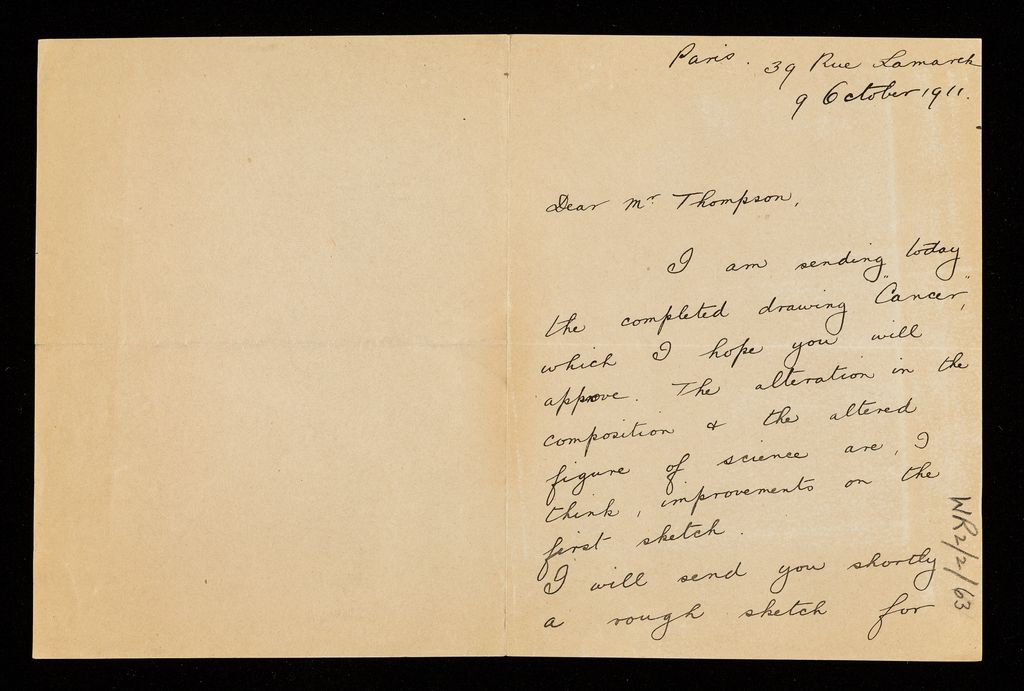 Paris. 39 Rue Lamarck
9 October 1911.
Dear Mr Thompson,
I am sending today
the completed drawing "Cancer",
which I hope you will
approve. The alteration in the
composition & the altered
figure of science are, I
think, improvements on the
first sketch.
I will send you shortly
a rough sketch for
WR2/2/63